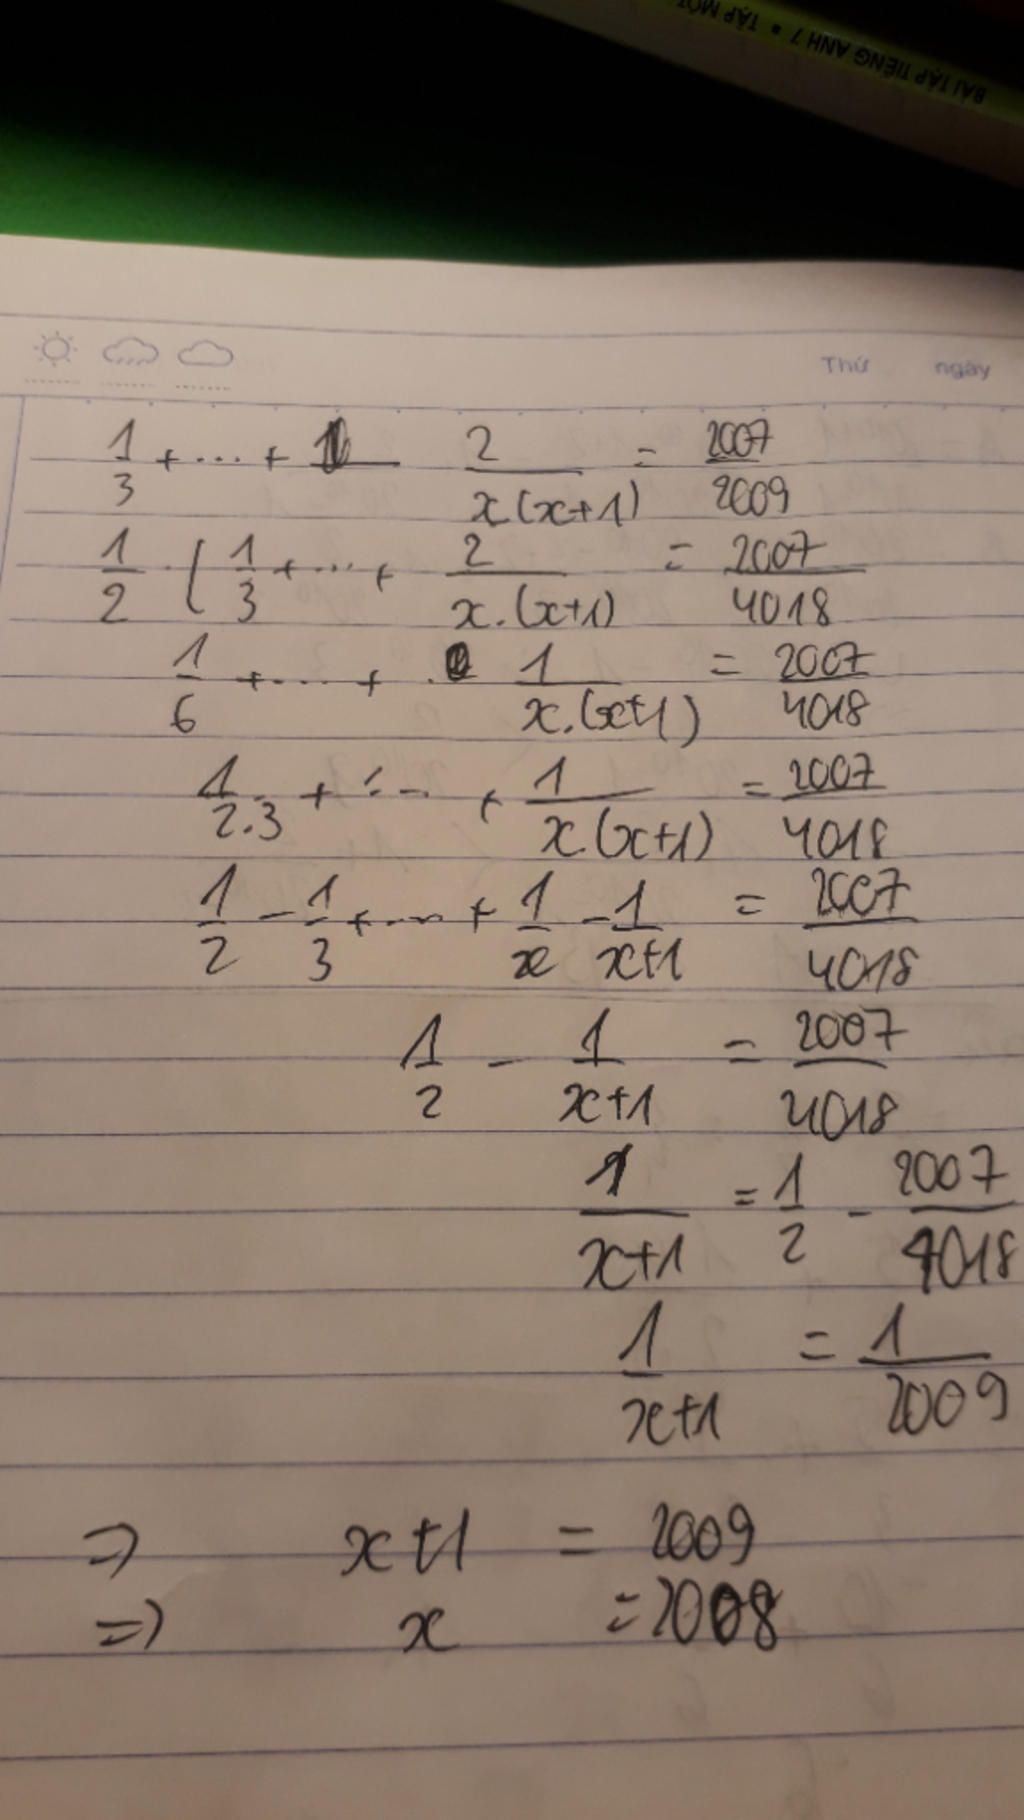 BÀI TẬP TIẾNG ANH 7 • TẬP MỘT
Thứ ngày
1/3 + ... + 2/x(x+1) = 2007/2009
1/2 . ( 1/3 + ... + 2/x.(x+1) = 2007/4018
1/6 + ... + 1/x.(x+1) = 2007/4018
1/2.3 + ... + 1/x.(x+1) = 2007/4018
1/2 - 1/3 + ... + 1/x - 1/x+1 = 2007/4018
1/2 - 1/x+1 = 2007/4018
1/x+1 = 1/2 - 2007/4018
1/x+1 = 1/2009
=> x+1 = 2009
=> x = 2008